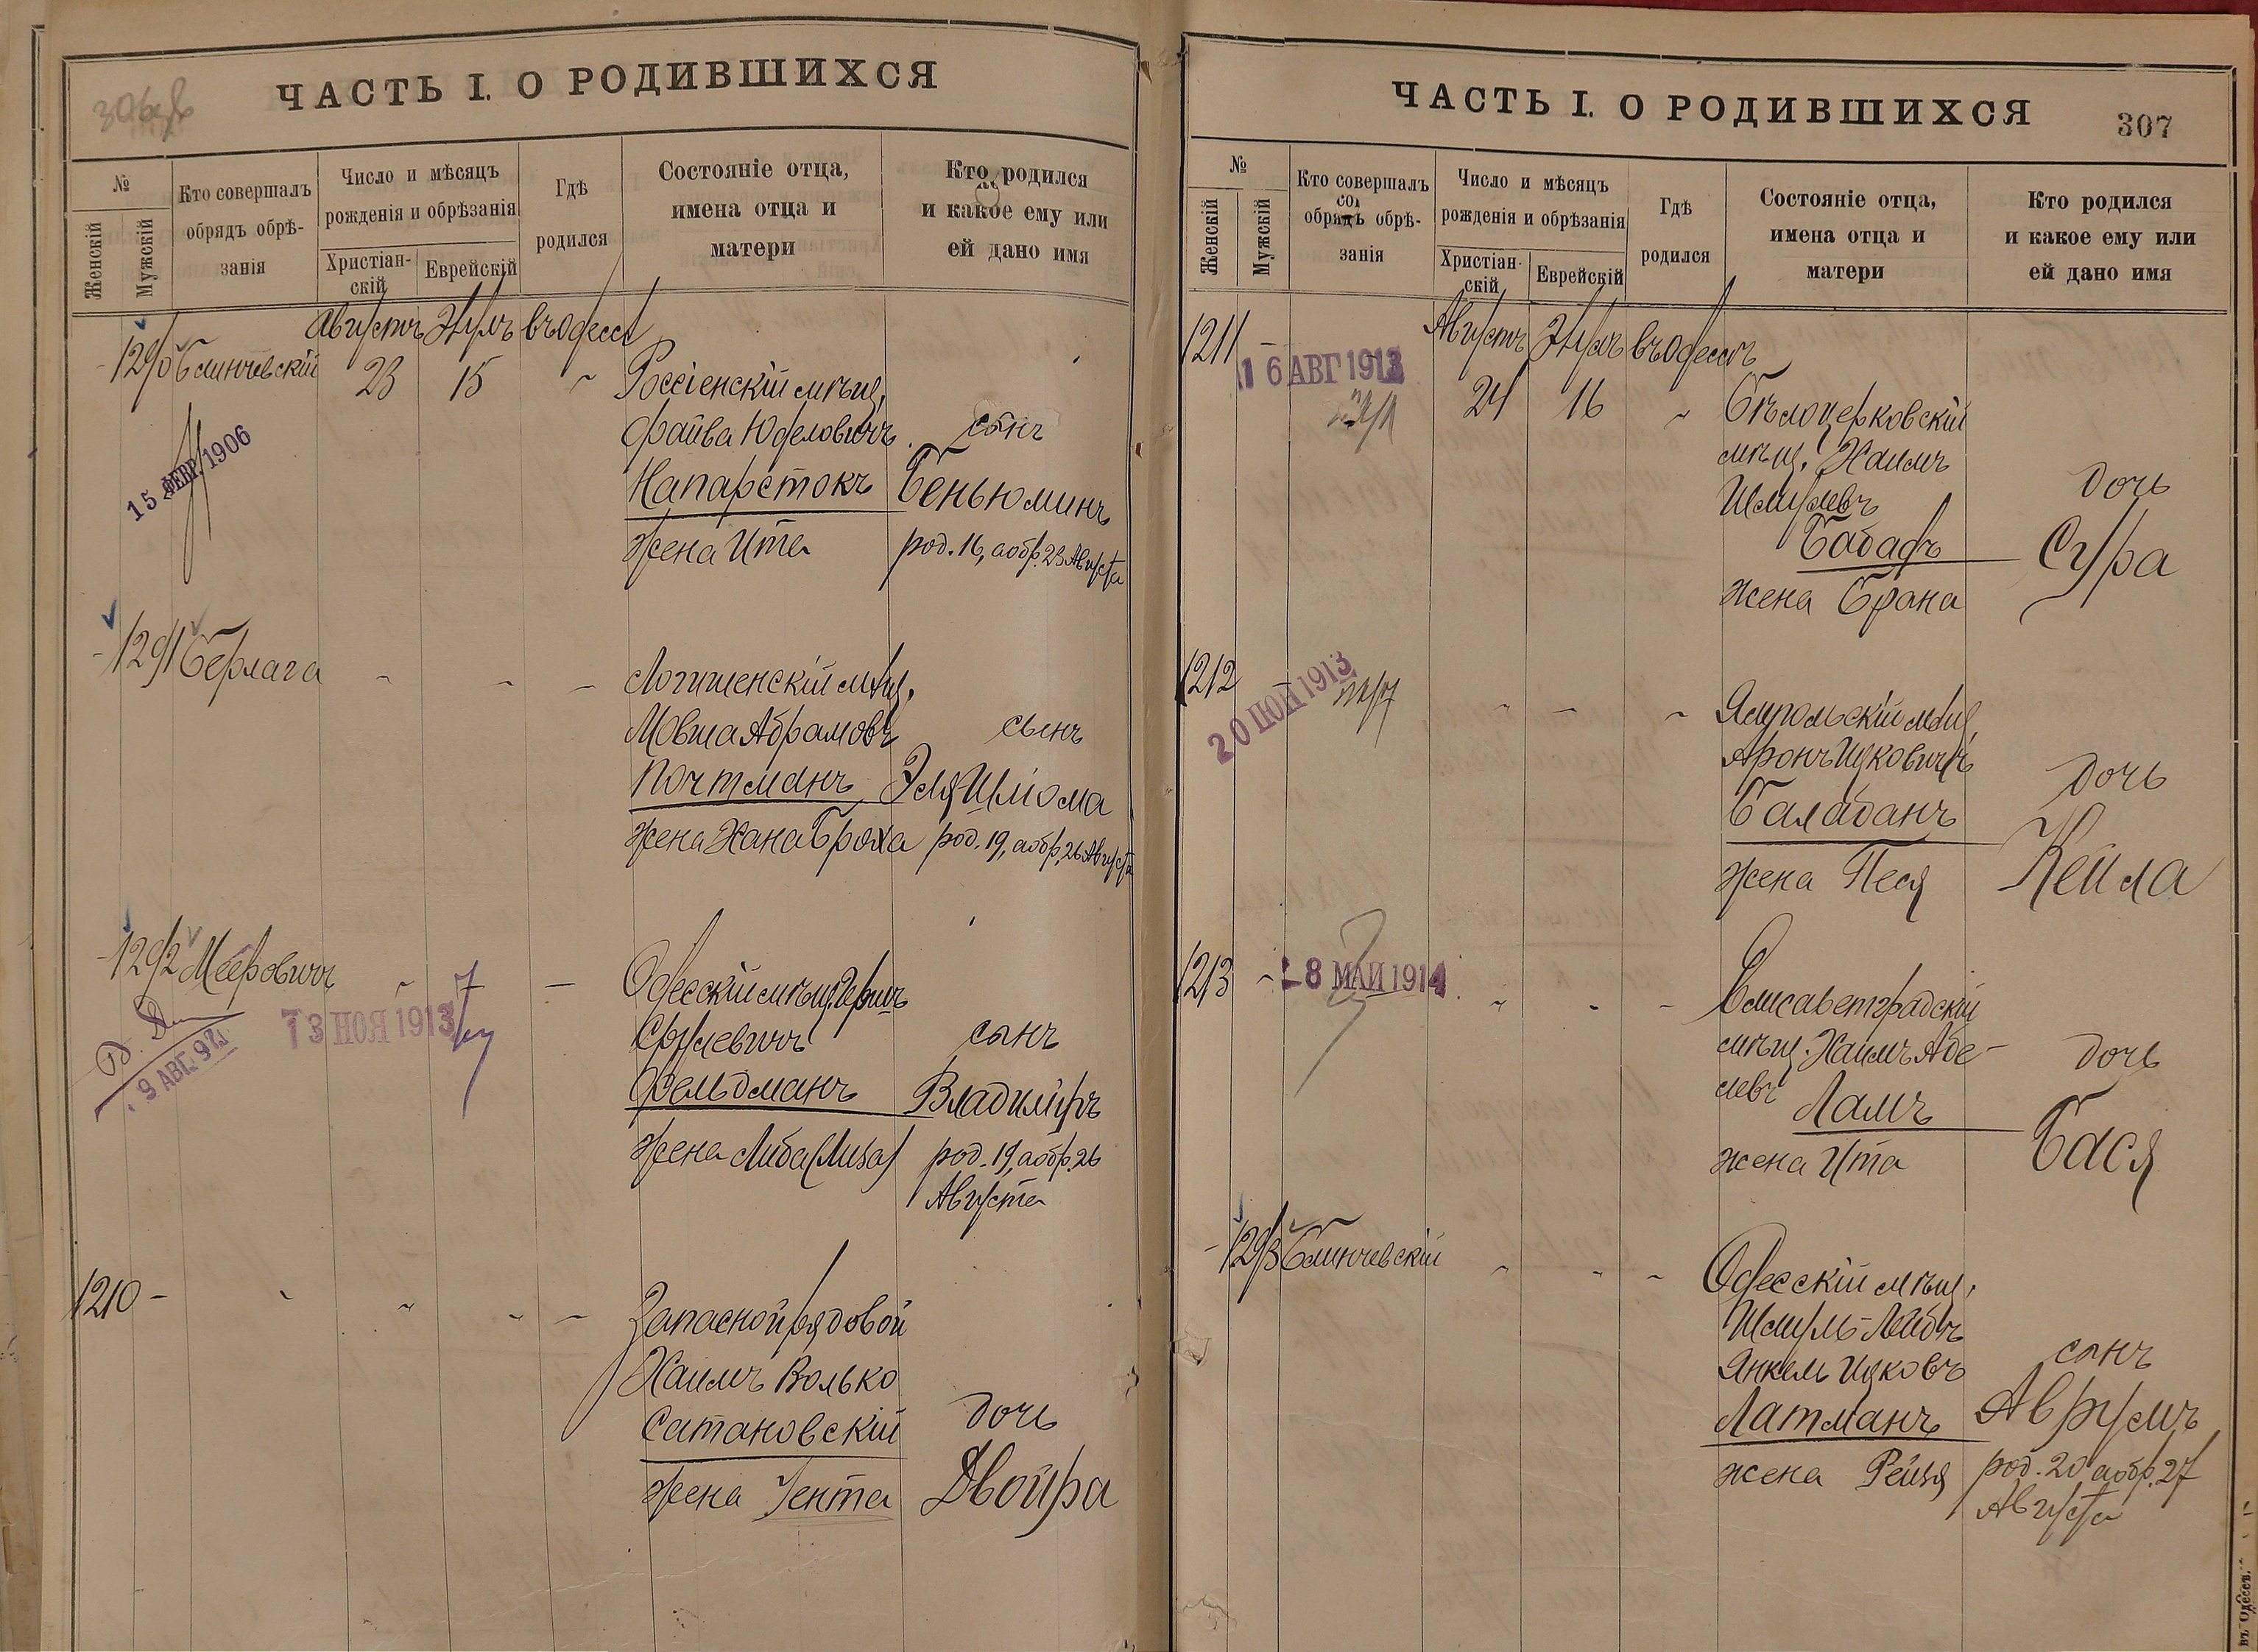 ЧАСТЬ I. О РОДИВШИХСЯ
№
Женскій
Мужскій
Кто совершалъ
обрядъ обрѣ-
занія
Число и мѣсяцъ
рожденія и обрѣзанія
Христіан-
скій
Еврейскій
Гдѣ
родился
Состояніе отца,
имена отца и
матери
Кто родился
и какое ему или
ей дано имя
Августъ Элулъ въ Одессѣ
1290 Блинчевскій 23 15
Россіенскій мѣщ.
Файва Юделовичъ сынъ
Напарстокъ Беньюминъ
жена Ита род. 16, а обр. 23 Августа
15 ФЕВР. 1906
1291 Берлага
Логишенскій мѣщ.
Мовша Абрамовъ сынъ
Почтманъ Эля Шлiома
жена Хана Броха род. 19, а обр. 26 Августа
1292 Меѣровичъ
Одесскій мѣщ. Гершъ
Срулевичъ сынъ
Фельдманъ Владиміръ
жена Либа (Лиза) род. 19, а обр. 26
Августа
13 НОЯ 1913
9 АВГ. 92
1210 -
Запасной рядовой
Хаимъ Волько
Сатановскій дочь
жена Уента Двойра
ЧАСТЬ I. О РОДИВШИХСЯ
307
№
Женскій
Мужскій
Кто совершалъ
обрядъ обрѣ-
занія
Число и мѣсяцъ
рожденія и обрѣзанія
Христіан-
скій
Еврейскій
Гдѣ
родился
Состояніе отца,
имена отца и
матери
Кто родился
и какое ему или
ей дано имя
Августъ Элулъ въ Одессѣ
1211 - 24 16
16 АВГ 1913
Бѣлоцерковскій
мѣщ. Хаимъ
Шмулевъ дочь
Бабадъ Сура
жена Брана
1212
20 ІЮН 1913
Ямпольскій мѣщ.
Аронъ Ицковичъ дочь
Балабанъ
жена Песя Кейла
1213 -
-8 МАЙ 1914
Елисаветградскій
мѣщ. Хаимъ Абе-
левъ дочь
Ламъ
жена Ита Бася
1293 Блинчевскій
Одесскій мѣщ.
Шмуль-Лейбъ
Янкель Ицковъ сынъ
Латманъ Аврумъ
жена Рейзя род. 20 а обр. 27
Августа
въ Одессѣ.